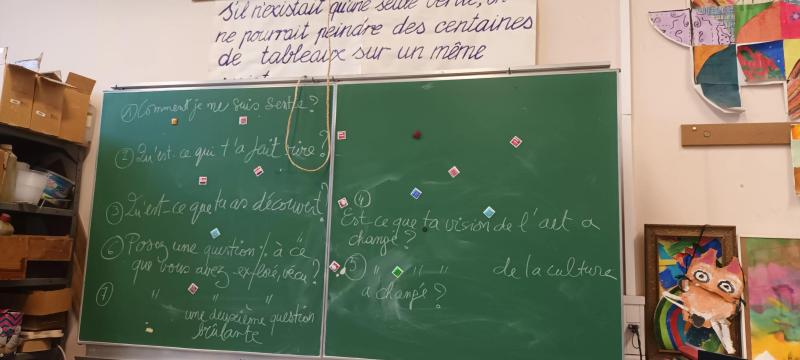 S'il n'existait qu'une seule vérité, on
ne pourrait peindre des centaines
de tableaux sur un même
① Comment je me suis sentie ?
② Qu'est-ce qui t'a fait rire ?
③ Qu'est-ce que tu as découvert ?
⑥ Posez une question % à ce
que vous avez exploré, vécu ?
⑦ " " "
une deuxième question
brûlante
④
Est ce que ta vision de l'art a
changé ?
⑤ " " " " de la culture
a changé ?